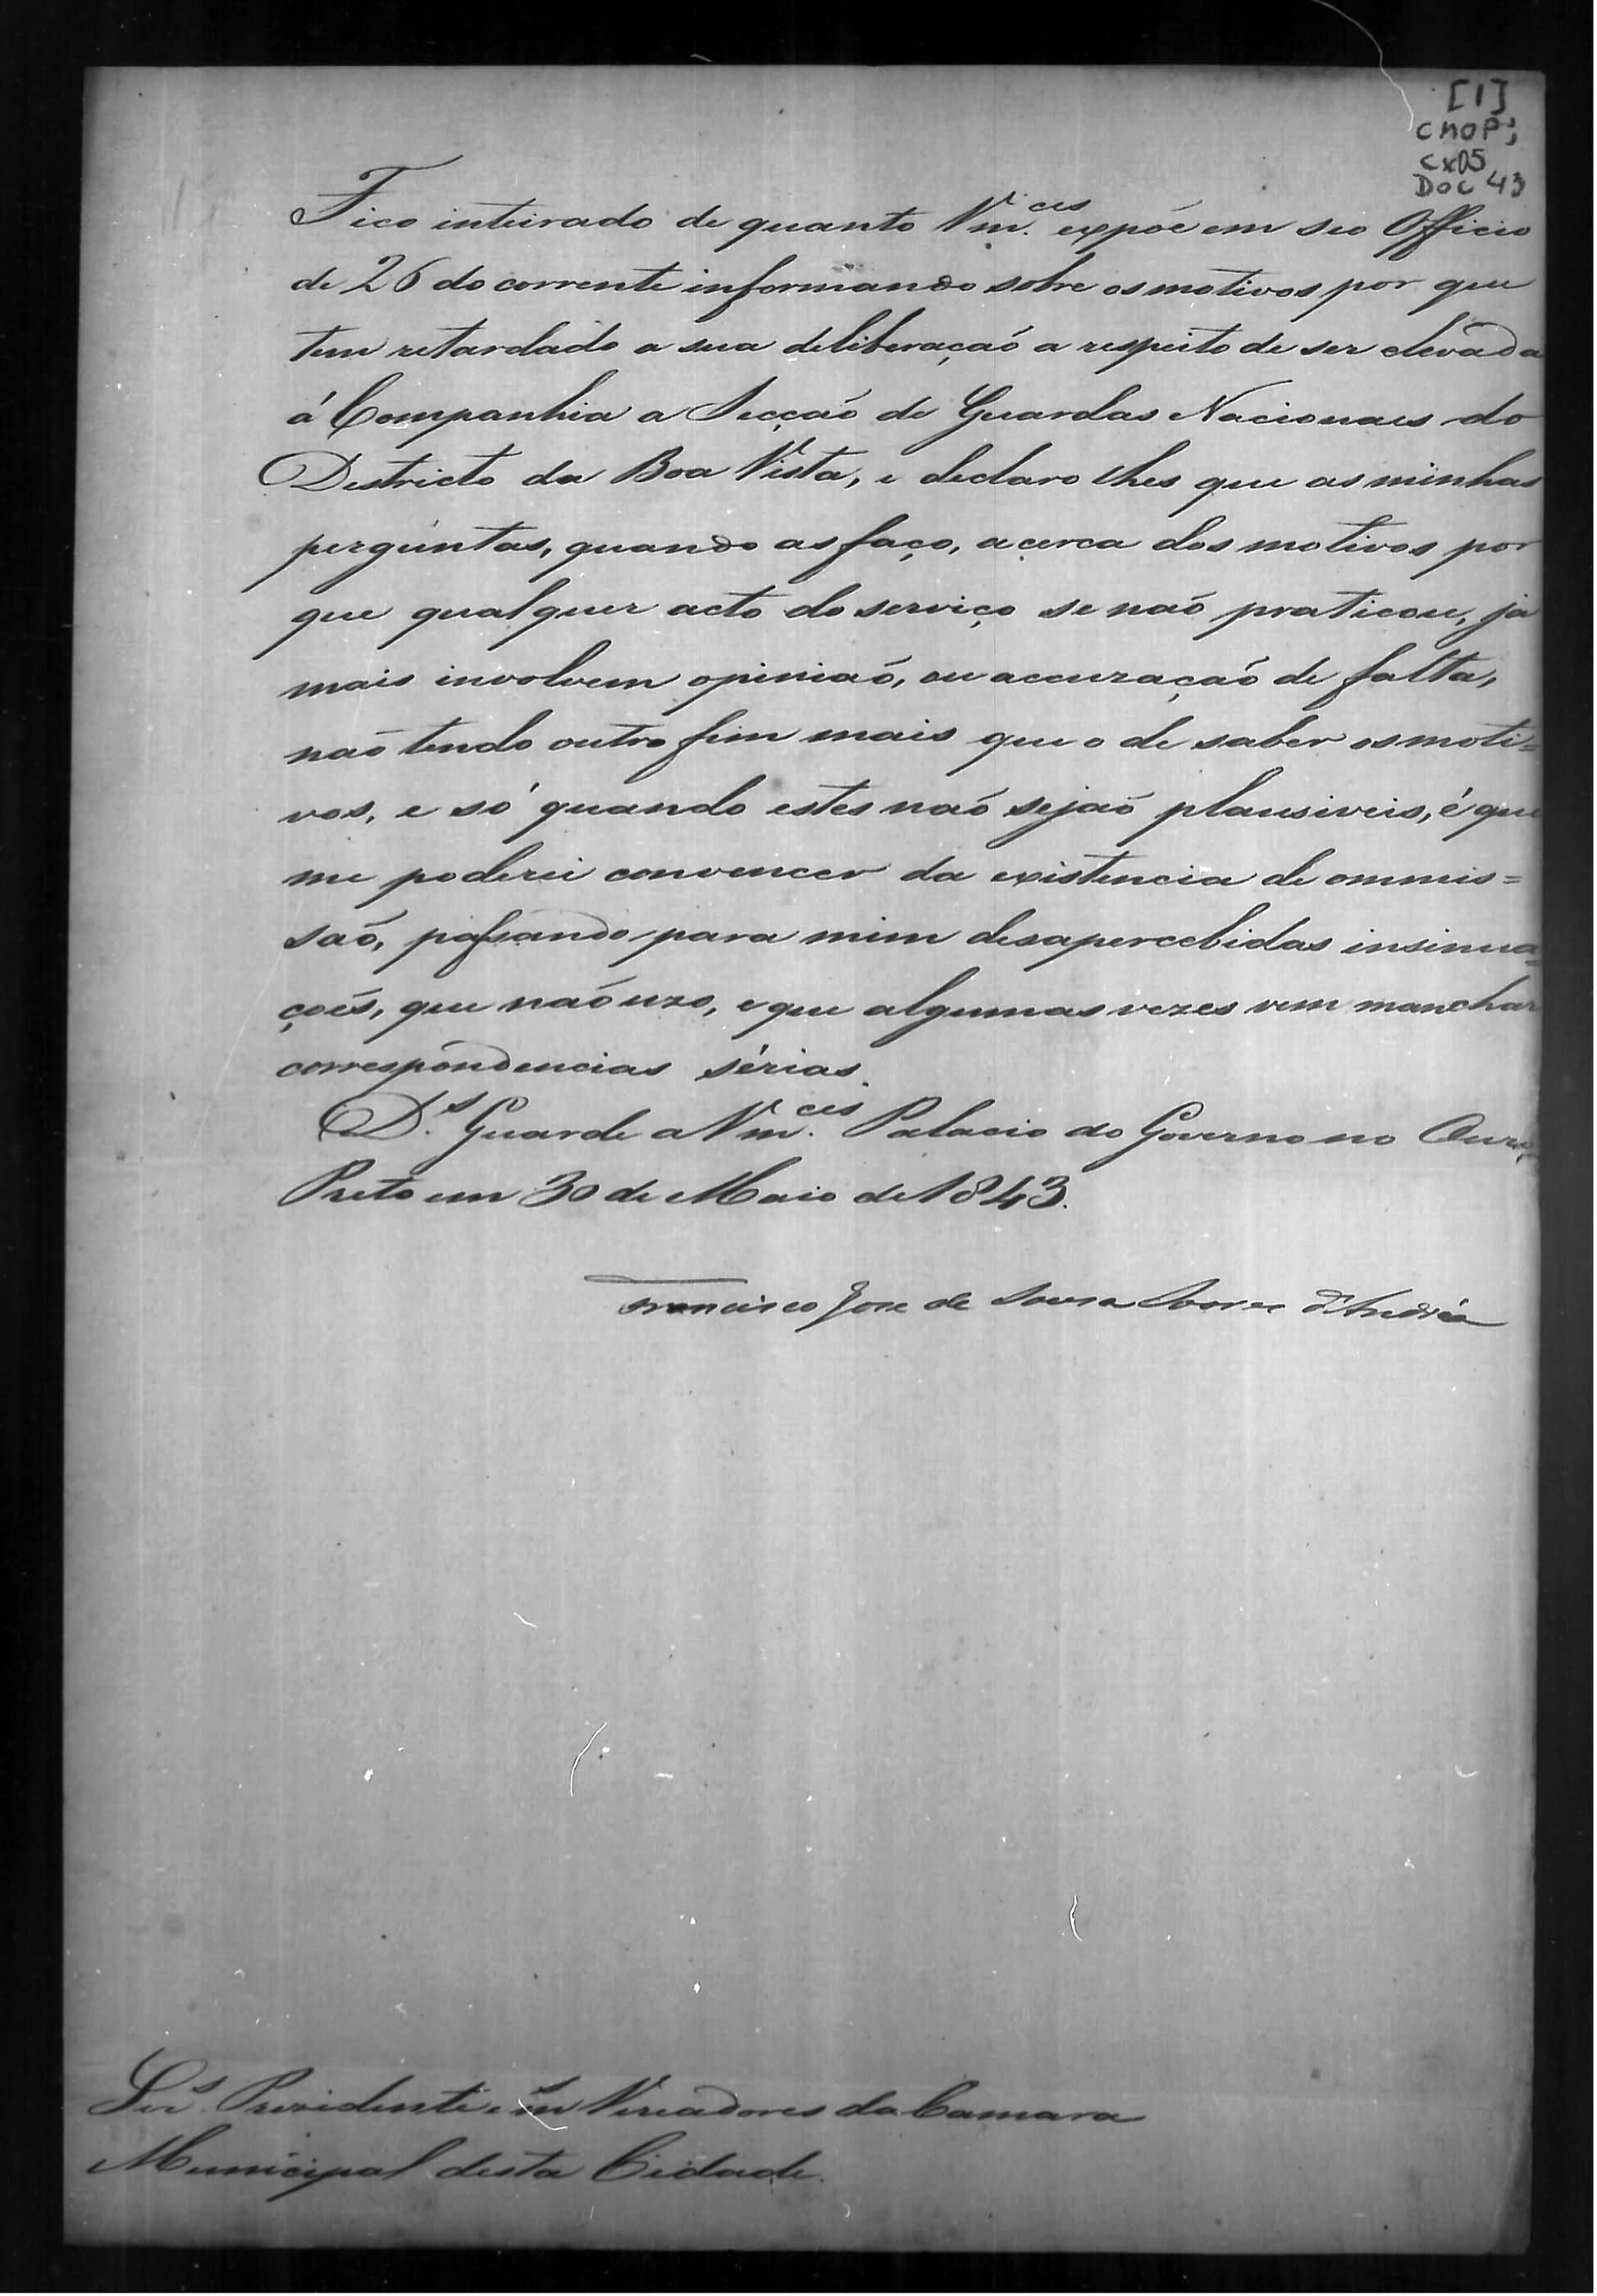 [1]
CMOP;
Cx05
Doc 43
Fico inteirado de quanto Vm.ces expõe em seo Officio
de 26 do corrente informando sobre os motivos por que
tem retardado a sua deliberaçaõ a respeito de ser elevada
á Companhia a Secçaõ de Guardas Nacionaes do
Destricto da Boa Vista, e declaro lhes que as minhas
perguntas, quando as faço, acerca dos motivos por
que qualquer acto do serviço se naõ praticou, ja
mais involvem opiniaõ, ou accuzaçaõ de falta,
naõ tendo outro fim mais que o de saber os moti=
vos, e só quando estes naõ sejaõ plausiveis, é que
me poderei convencer da existencia de ommis=
saõ, passando para mim desapercebidas insinua=
çoẽs, que naõ uzo, e que algumas vezes vem manchar
correspondencias sérias.
D.s Guarde a Vm.ces Palacio do Governo no Ouro
Preto em 30 de Maio de 1843.
Francisco Jose de Sousa Soares d'Andréa
Snr.s Presidente e Vereadores da Camara
Municipal desta Cidade.